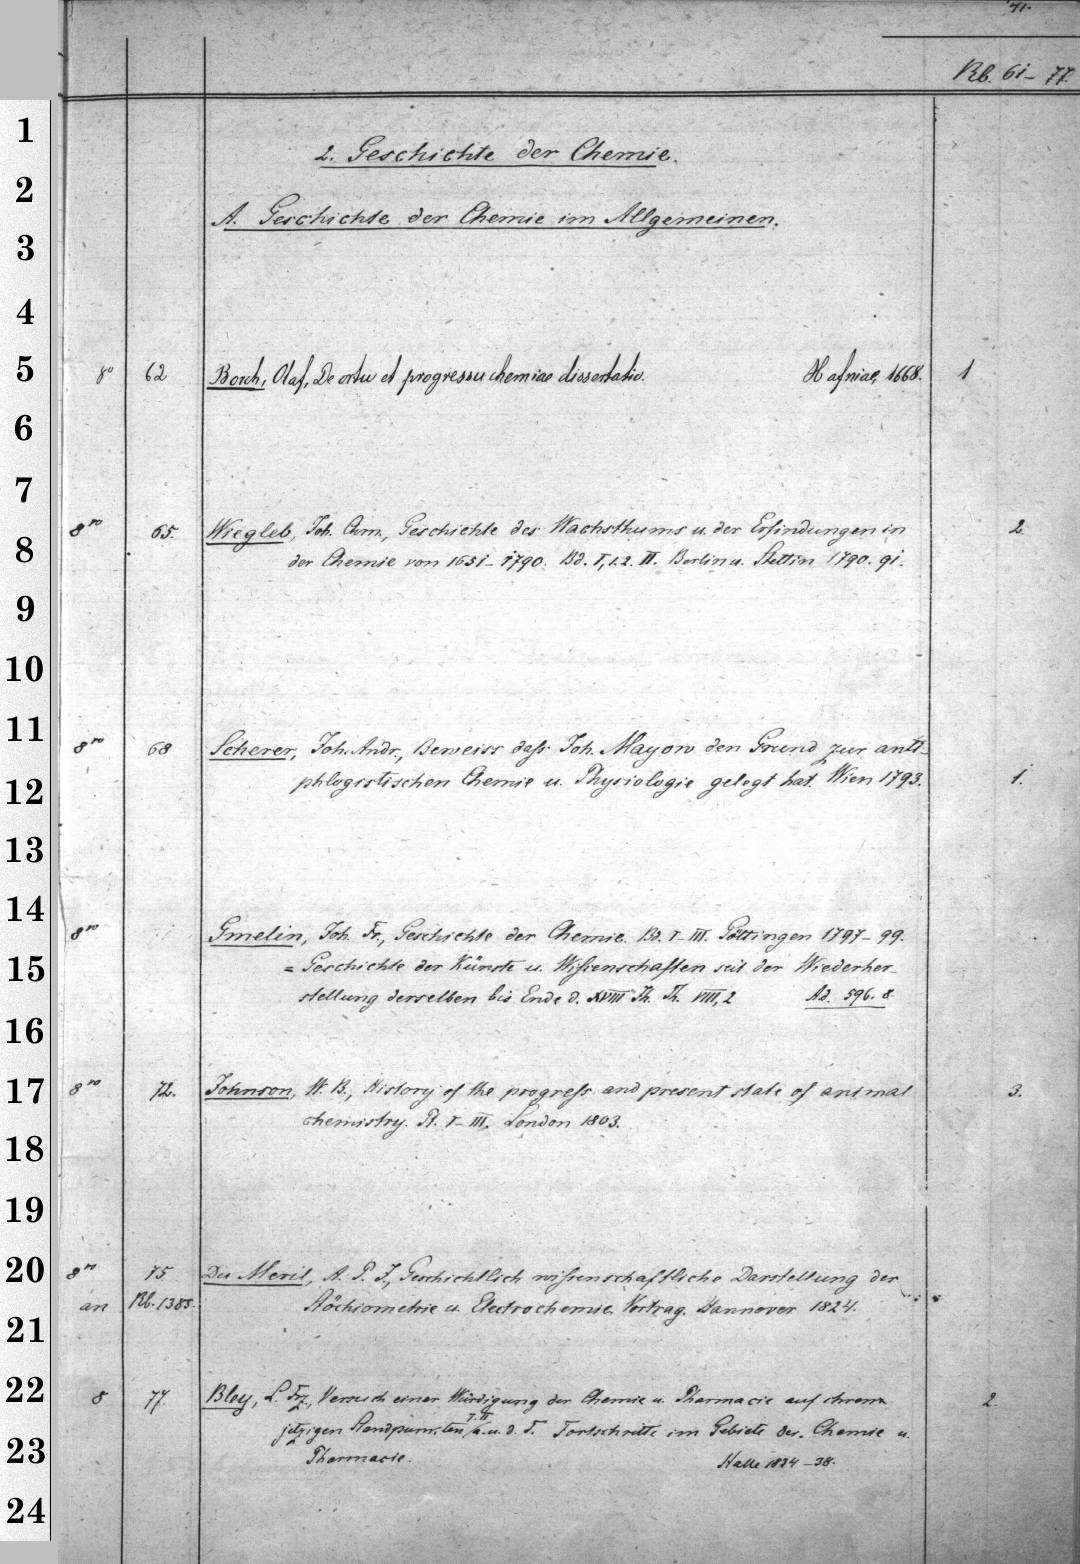 71.
Rb. 61-77.
1
2. Geschichte der Chemie.
2
A. Geschichte der Chemie im Allgemeinen.
3
4
5
8° 62 Borch, Olaf, De ortu et progressu chemiae dissertatio. Hafniae, 1668. 1
6
7
8ro 65. Wiegleb, Joh. Chrn., Geschichte des Wachsthums u. der Erfindungen in 2.
8
der Chemie von 1651-1790. Bd. I,1.2. II. Berlin u. Stettin 1790. 91.
9
10
11
8ro 68 Scherer, Joh. Andr., Beweiss dass Joh. Mayow den Grund zur anti-
12
phlogistischen Chemie u. Physiologie gelegt hat. Wien 1793. 1.
13
14
8ro Gmelin, Joh. Fr., Geschichte der Chemie. Bd. I-III. Göttingen 1797-99.
15
= Geschichte der Künste u. Wissenschaften seit der Wiederher-
stellung derselben bis Ende d. XVIII Jh. Th. VIII, 2 Ad. 596. 8.
16
17
8ro 72. Johnson, W. B., History of the progress and present state of animal 3.
chemistry. Pt. I-III. London 1803.
18
19
20
8ro 75 Du Meril, A. P. J., Geschichtlich wissenschaftliche Darstellung der
an Rb. 1385. Stöchiometrie u. Electrochemie. Vortrag. Hannover 1824.
21
22
8 77. Bley, L. Frz., Versuch einer Würdigung der Chemie u. Pharmacie auf ihrem 2.
jetzigen Standpunkten T. II a. u. d. T. Fortschritte im Gebiete der Chemie u.
23
Pharmacie. Halle 1834-38.
24